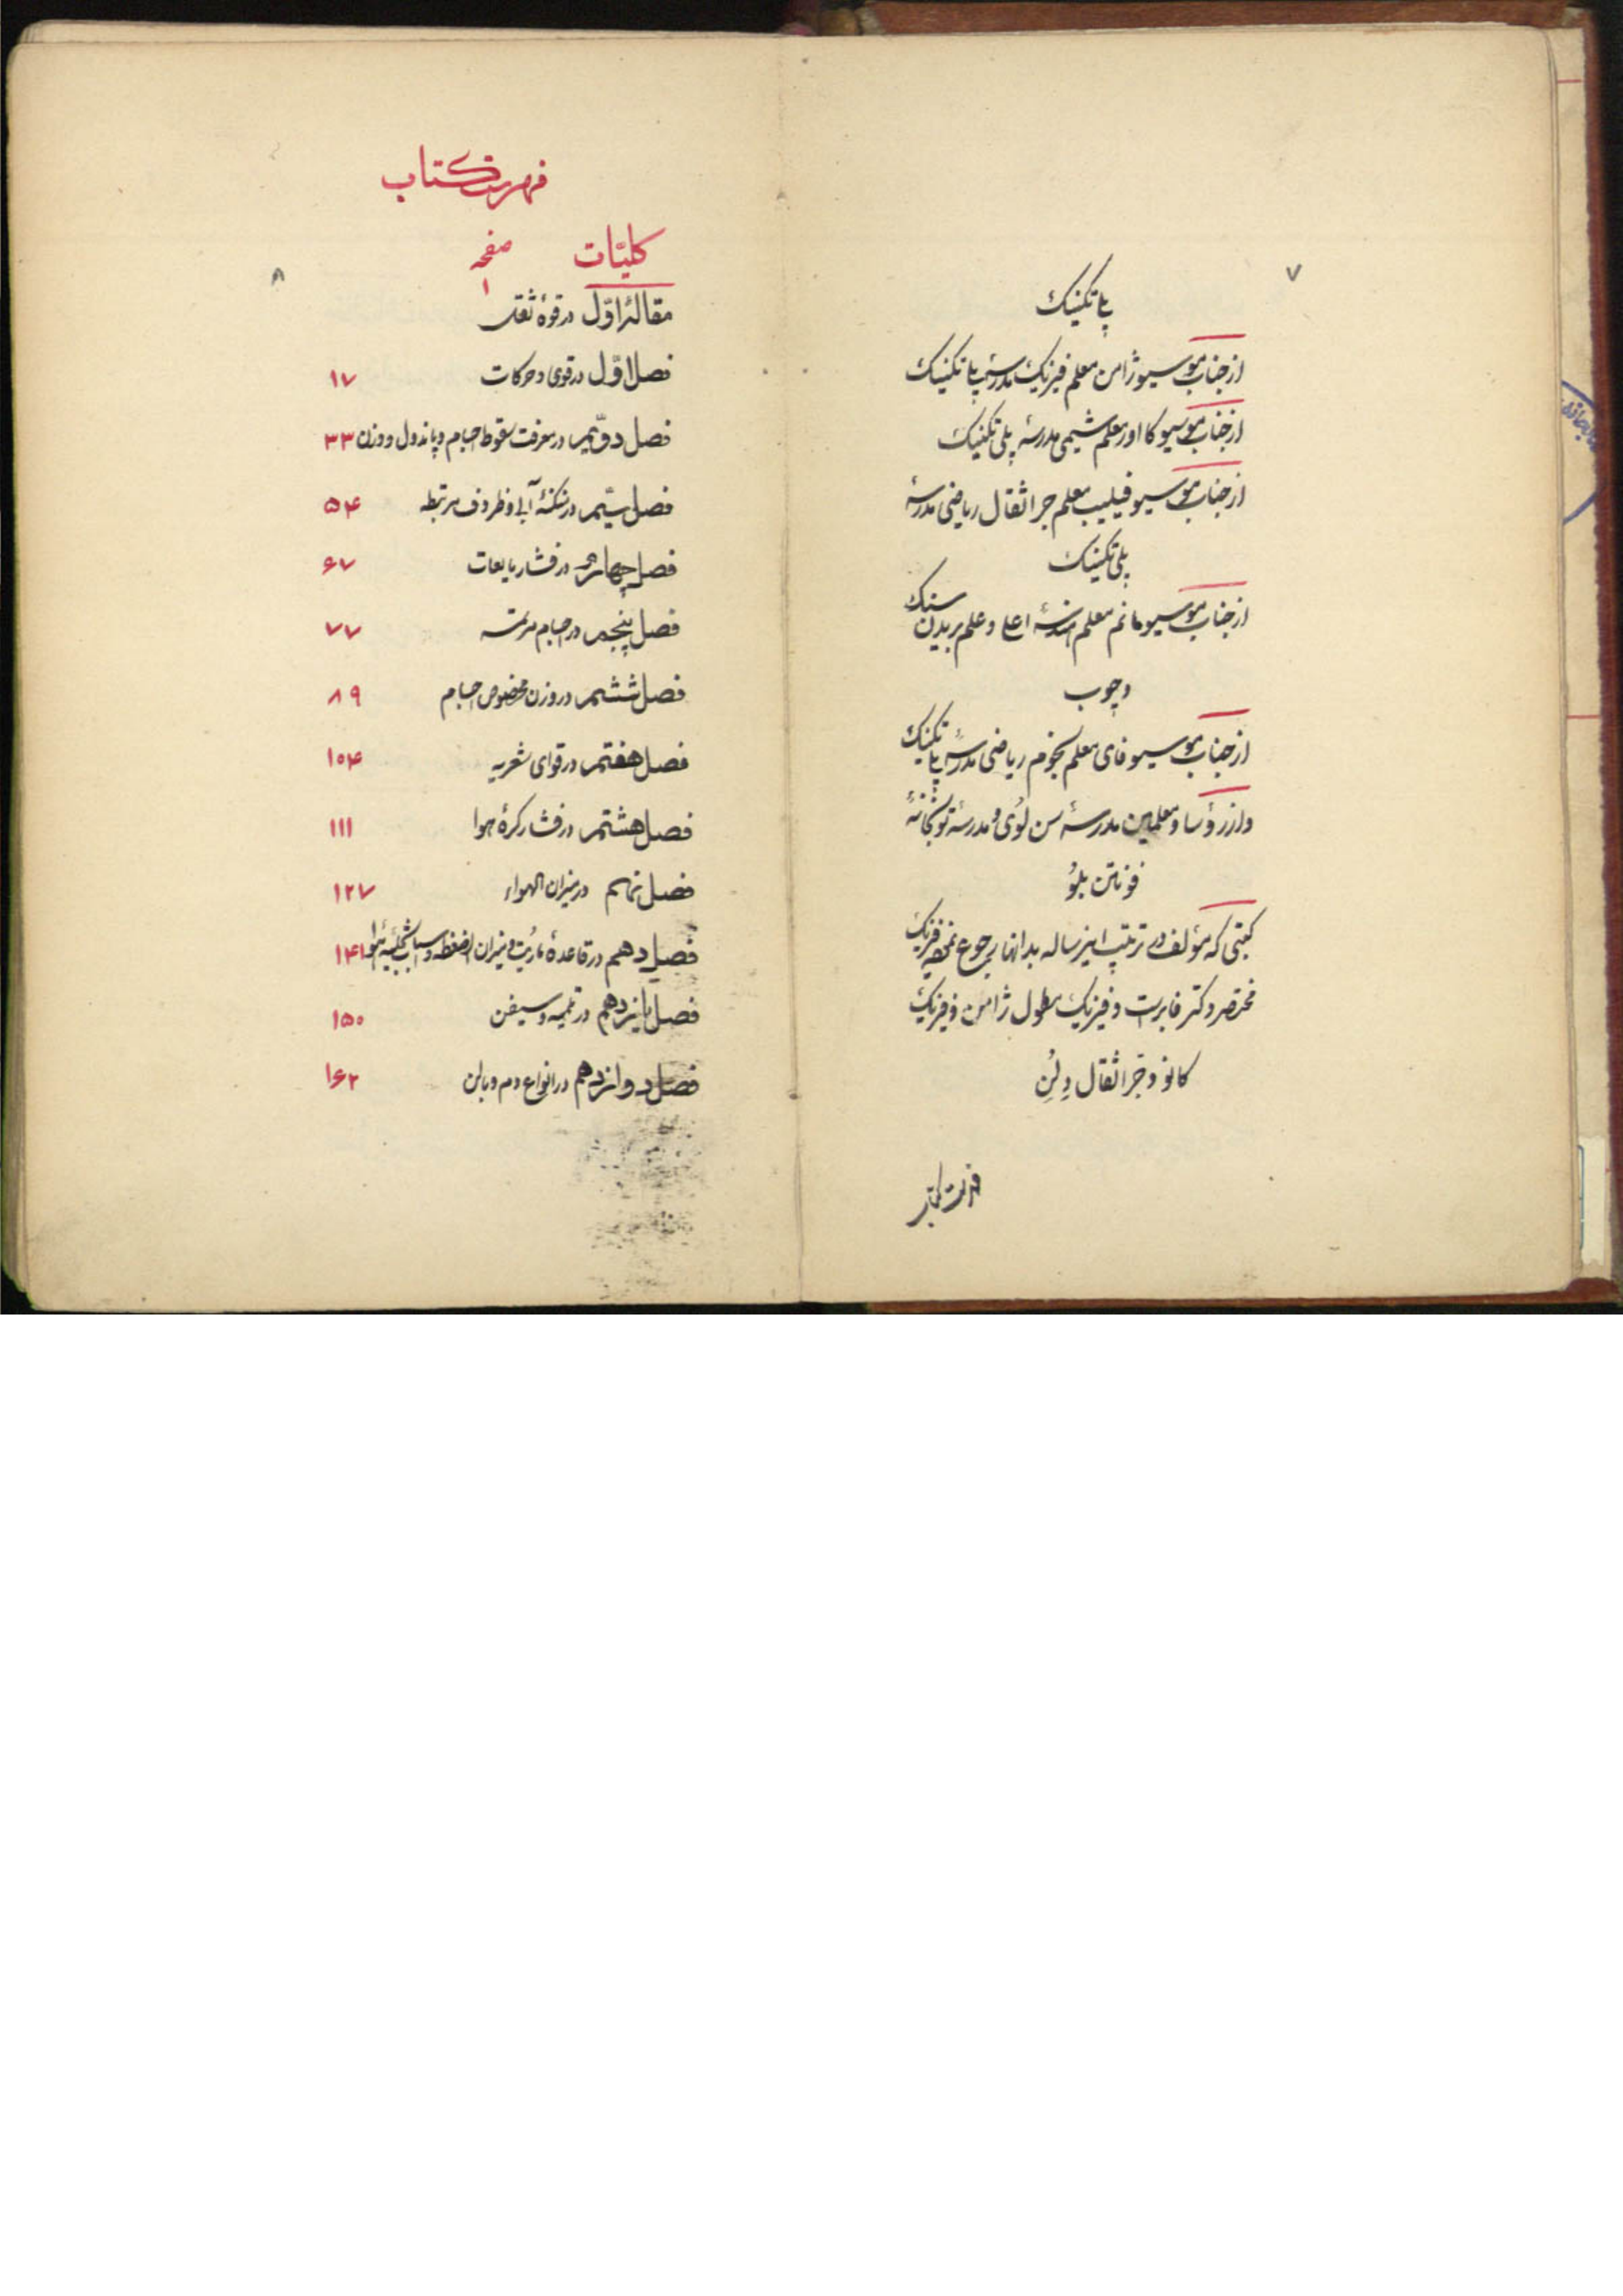 ۷
پلی تکنیک
از جناب موسیو ژامن معلم فیزیک مدرسهٔ پلی تکنیک
از جناب موسیو کااور معلم شیمی مدرسهٔ پلی تکنیک
از جناب موسیو فیلیپ معلم جراثقال ریاضی مدرسهٔ
پلی تکنیک
از جناب موسیو مانم معلم هندسهٔ اعلی و علم بریدن سنک
و چوب
از جناب موسیو فای معلم نجوم ریاضی مدرسهٔ پلی تکنیک
و از رؤسا و معلمین مدرسهٔ سن لوی و مدرسهٔ توپخانهٔ
فونتن بلو
کتبی که مؤلف در ترتیب اینرساله بدانها رجوع نموده فیزیک
مختصر دکتر فابرست و فیزیک مطول ژامن و فیزیک
کانو و جراثقال دلن
فهرست کتاب
۸
فهرست کتاب
کلیّات صفحه
۱
مقالهٔ اوّل در قوهٔ ثقل
فصل اوّل در قوی و حرکات ۱۷
فصل دوّیم در معرفت سقوط اجسام و پاندول و وزن ۳۳
فصل سیّم در سکنهٔ آبی و ظروف مرتبطه ۵۴
فصل چهارم در فشار مایعات ۶۷
فصل پنجم در اجسام مرتمسه ۷۷
فصل ششم در وزن مخصوص اجسام ۸۹
فصل هفتم در قوای شعریه ۱۰۴
فصل هشتم در فشار کرهٔ هوا ۱۱۱
فصل نهم در میزان الهواء ۱۲۷
فصل دهم در قاعدهٔ ماریت و میزان الضغطه و اسباب تخلیهٔ هوا ۱۴۱
فصل یانزدهم در تلمبه و سیفن ۱۵۰
فصل دوازدهم در انواع دم و بالن ۱۶۲